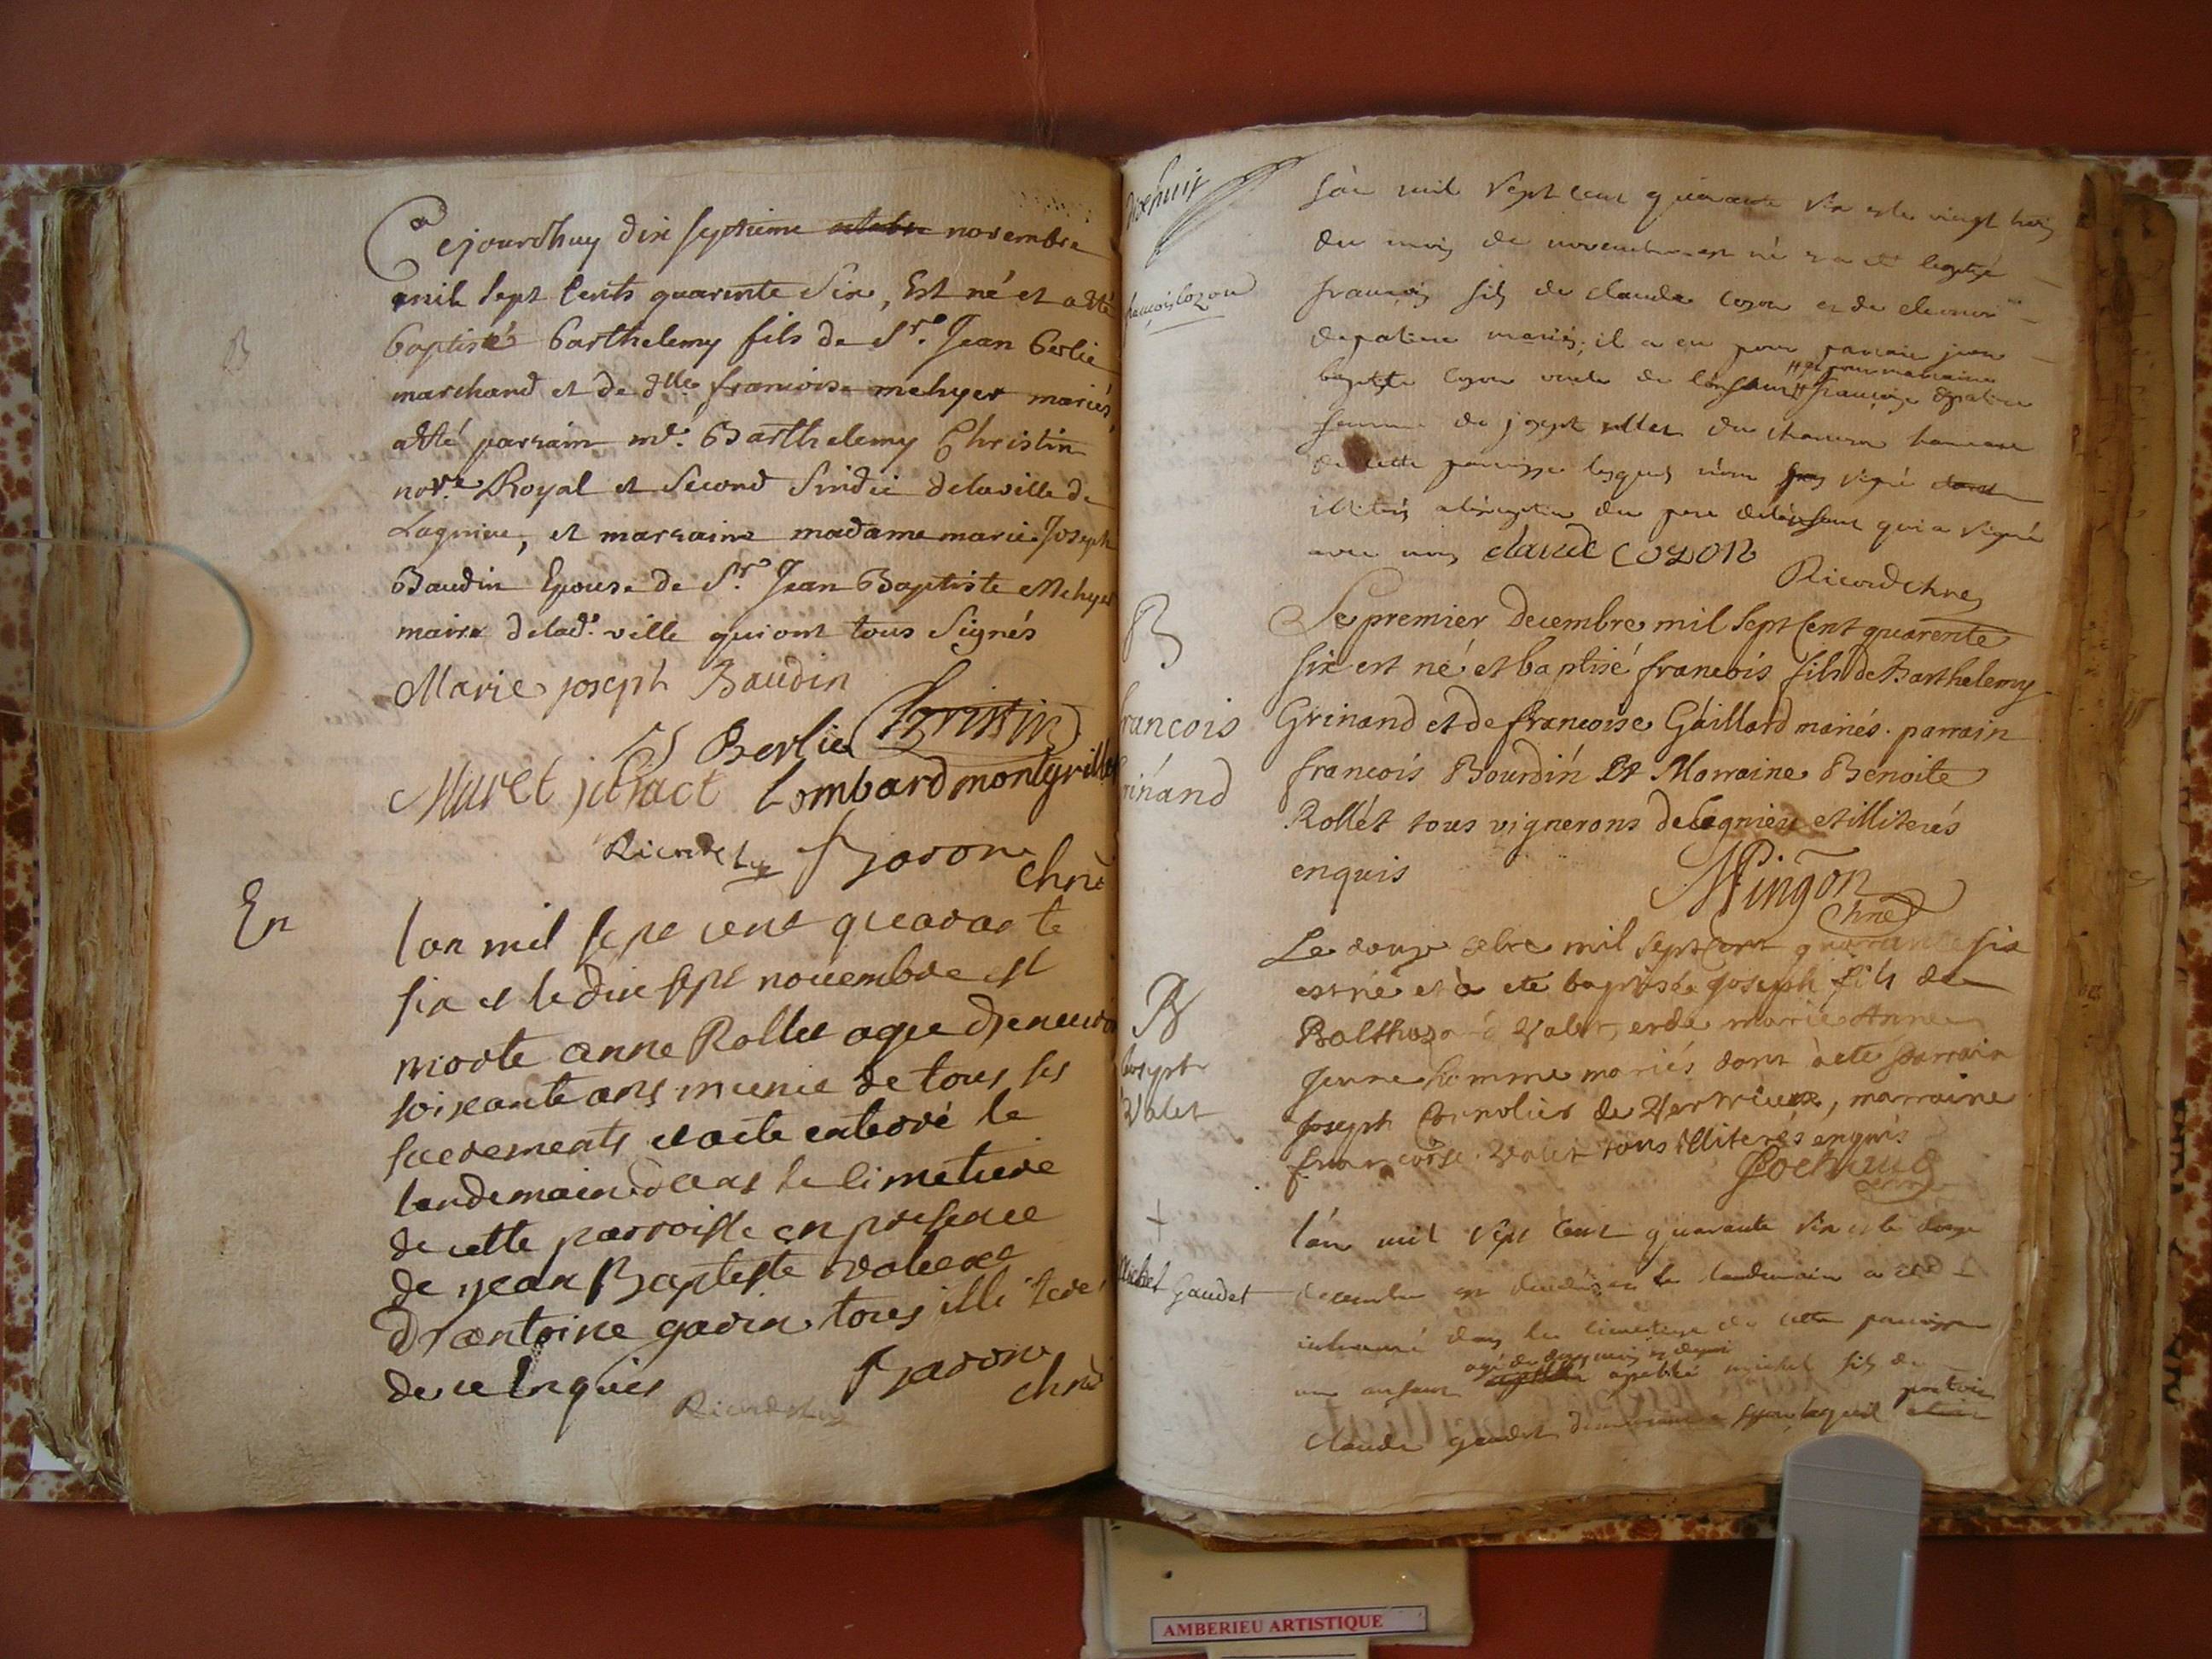 B
Cejourdhuy dix septieme octobre novembre
mil sept Cents quarente Six, Est né et a eté
baptisé Barthelemy fils de Sr. Jean Berlie
marchand et de dlle. francoise mehyer mariés,
a eté parrain mr. Barthelemy Christin
nore. Royal et Second Sindic delaville de
Lagnieu, et marraine madame marie Joseph
Baudin Epouse de Sr. Jean Baptiste Mehyer
maire delad. ville qui ont tous Signés
Marie joseph Baudin
Berlie Christin
Muret Lombard montgrillet
Ricard Baron
chne
En
lan mil sept cent quarante
six et le dix sept novembre est
morte anne Rollet agee denviron
soixante ans munie de tous ses
sacrements et a ete enterré le
landemain dans le cimetiere
de cette parroisse en presence
de jean Baptiste
Et antoine gavin tous illiteres
de ce Enquis Baron
chne
Ricard
Dixhuit
francois cozon
l'an mil sept cent quarante six et le vingt trois
du mois de novembre est né et a eté baptisé
francois fils de claude cozon et de eleonor
depaline mariés; il a eu pour parrain jean
et pour marraine
baptiste cozon oncle de l'enfant francoise depaline
femme de joseph rollet du hameau
de cette paroisse lesquels n'ont pas signé
illiterés a l'exception du pere de l'enfant qui a signé
avec nous claude cozon
Ricard chne
B
francois
Grinand
Le premier decembre mil sept Cent quarente
six est né et baptisé francois fils de Barthelemy
Grinand et de francoise Gaillard mariés. parrain
francois Bourdin Et Marraine Benoite
Rollet tous vignerons de Lagnieu et illiterés
enquis
Pingon
Chne
B
Joseph
Valet
Le douze xbre mil sept cent quarante six
est né et à eté baptisé Joseph fils de
Balthazard Valet, et de marie Anne
Jeune homme mariés dont à eté parrain
Joseph Cornolier de Vertrieux, marraine
francoise Valet tous illiterés enquis
Pochaud
+
Michel Gaudet
l'an mil sept cent quarante six et le douze
decembre est decedé et le landemain a eté
enterré dans le cimetiere de cette paroisse
agé de deux mois et demi
un enfant appellé michel fils de
Claude gaudet